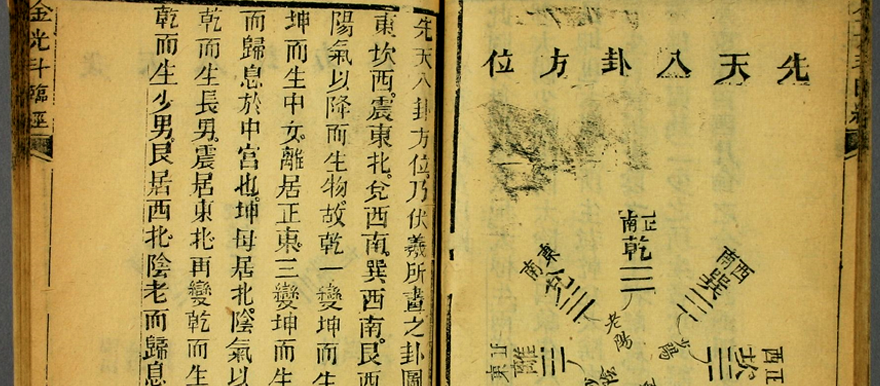 先天八卦方位
正南
乾
東南
兌
西南
巽
老陽
少陽
正東
離
西正
坎
先天八卦方位乃伏羲所畫之卦圖
東坎西。震東北。兌西南。巽西南。艮西
陽氣以降而生物。故乾一變坤而生
坤而生中女。離居正東。三變坤而生
而歸息於中宮也。坤母居北。陰氣以
乾而生長男。震居東北。再變乾而生
乾而生少男。艮居西北。陰老而歸息
金光斗臨經